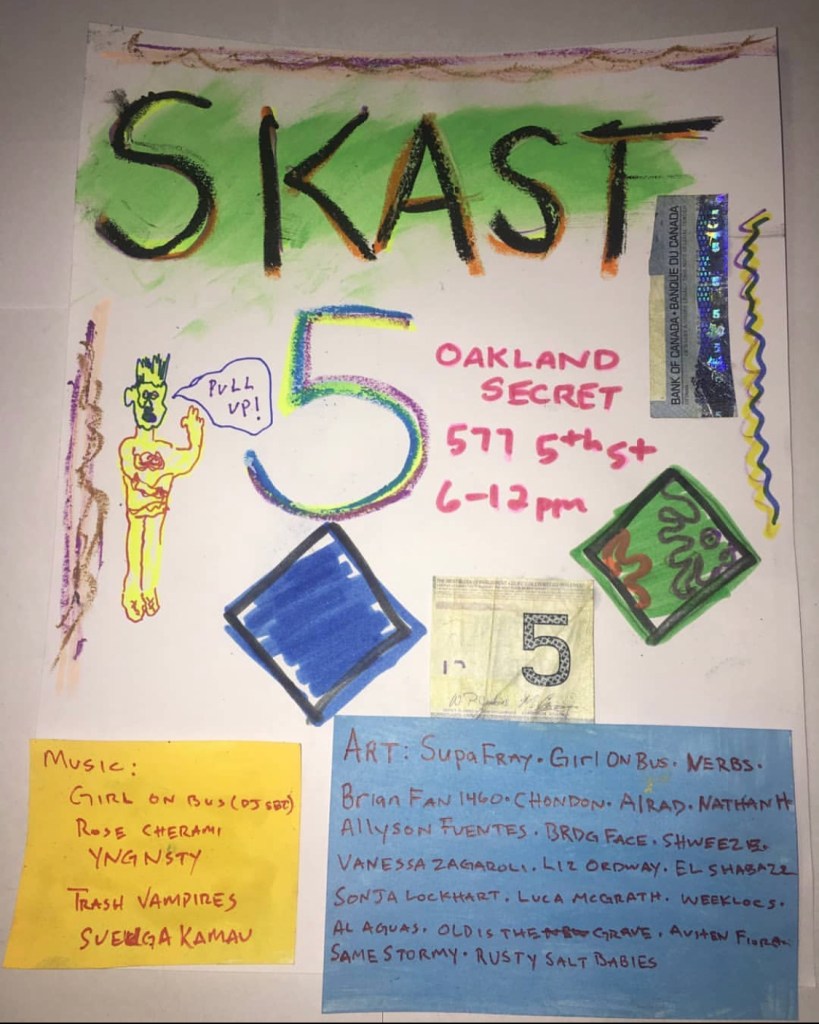 SKAST
5
BANK OF CANADA • BANQUE DU CANADA
PULL
UP!
OAKLAND
SECRET
577 5th St
6-12pm
5
MUSIC:
GIRL ON BUS (DJ SET)
ROSE CHERAMI
YNGNSTY
TRASH VAMPIRES
SUENGA KAMAU
ART: SUPAFRAY. GIRL ON BUS. NERBS.
Brian FAN 1460. CHONDON. AIRAD. NATHAN H
Allyson FUENTES. BRDG FACE. SHWEEZE.
VANESSA ZAGAROLI. LIZ ORDWAY. EL SHABAZZ
SONJA LOCKHART. LUCA McGRATH. WEEKLOCS.
AL AGUAS. OLD IS THE NEW GRAVE. AVIHEN
SAME STORMY. RUSTY SALT BABIES